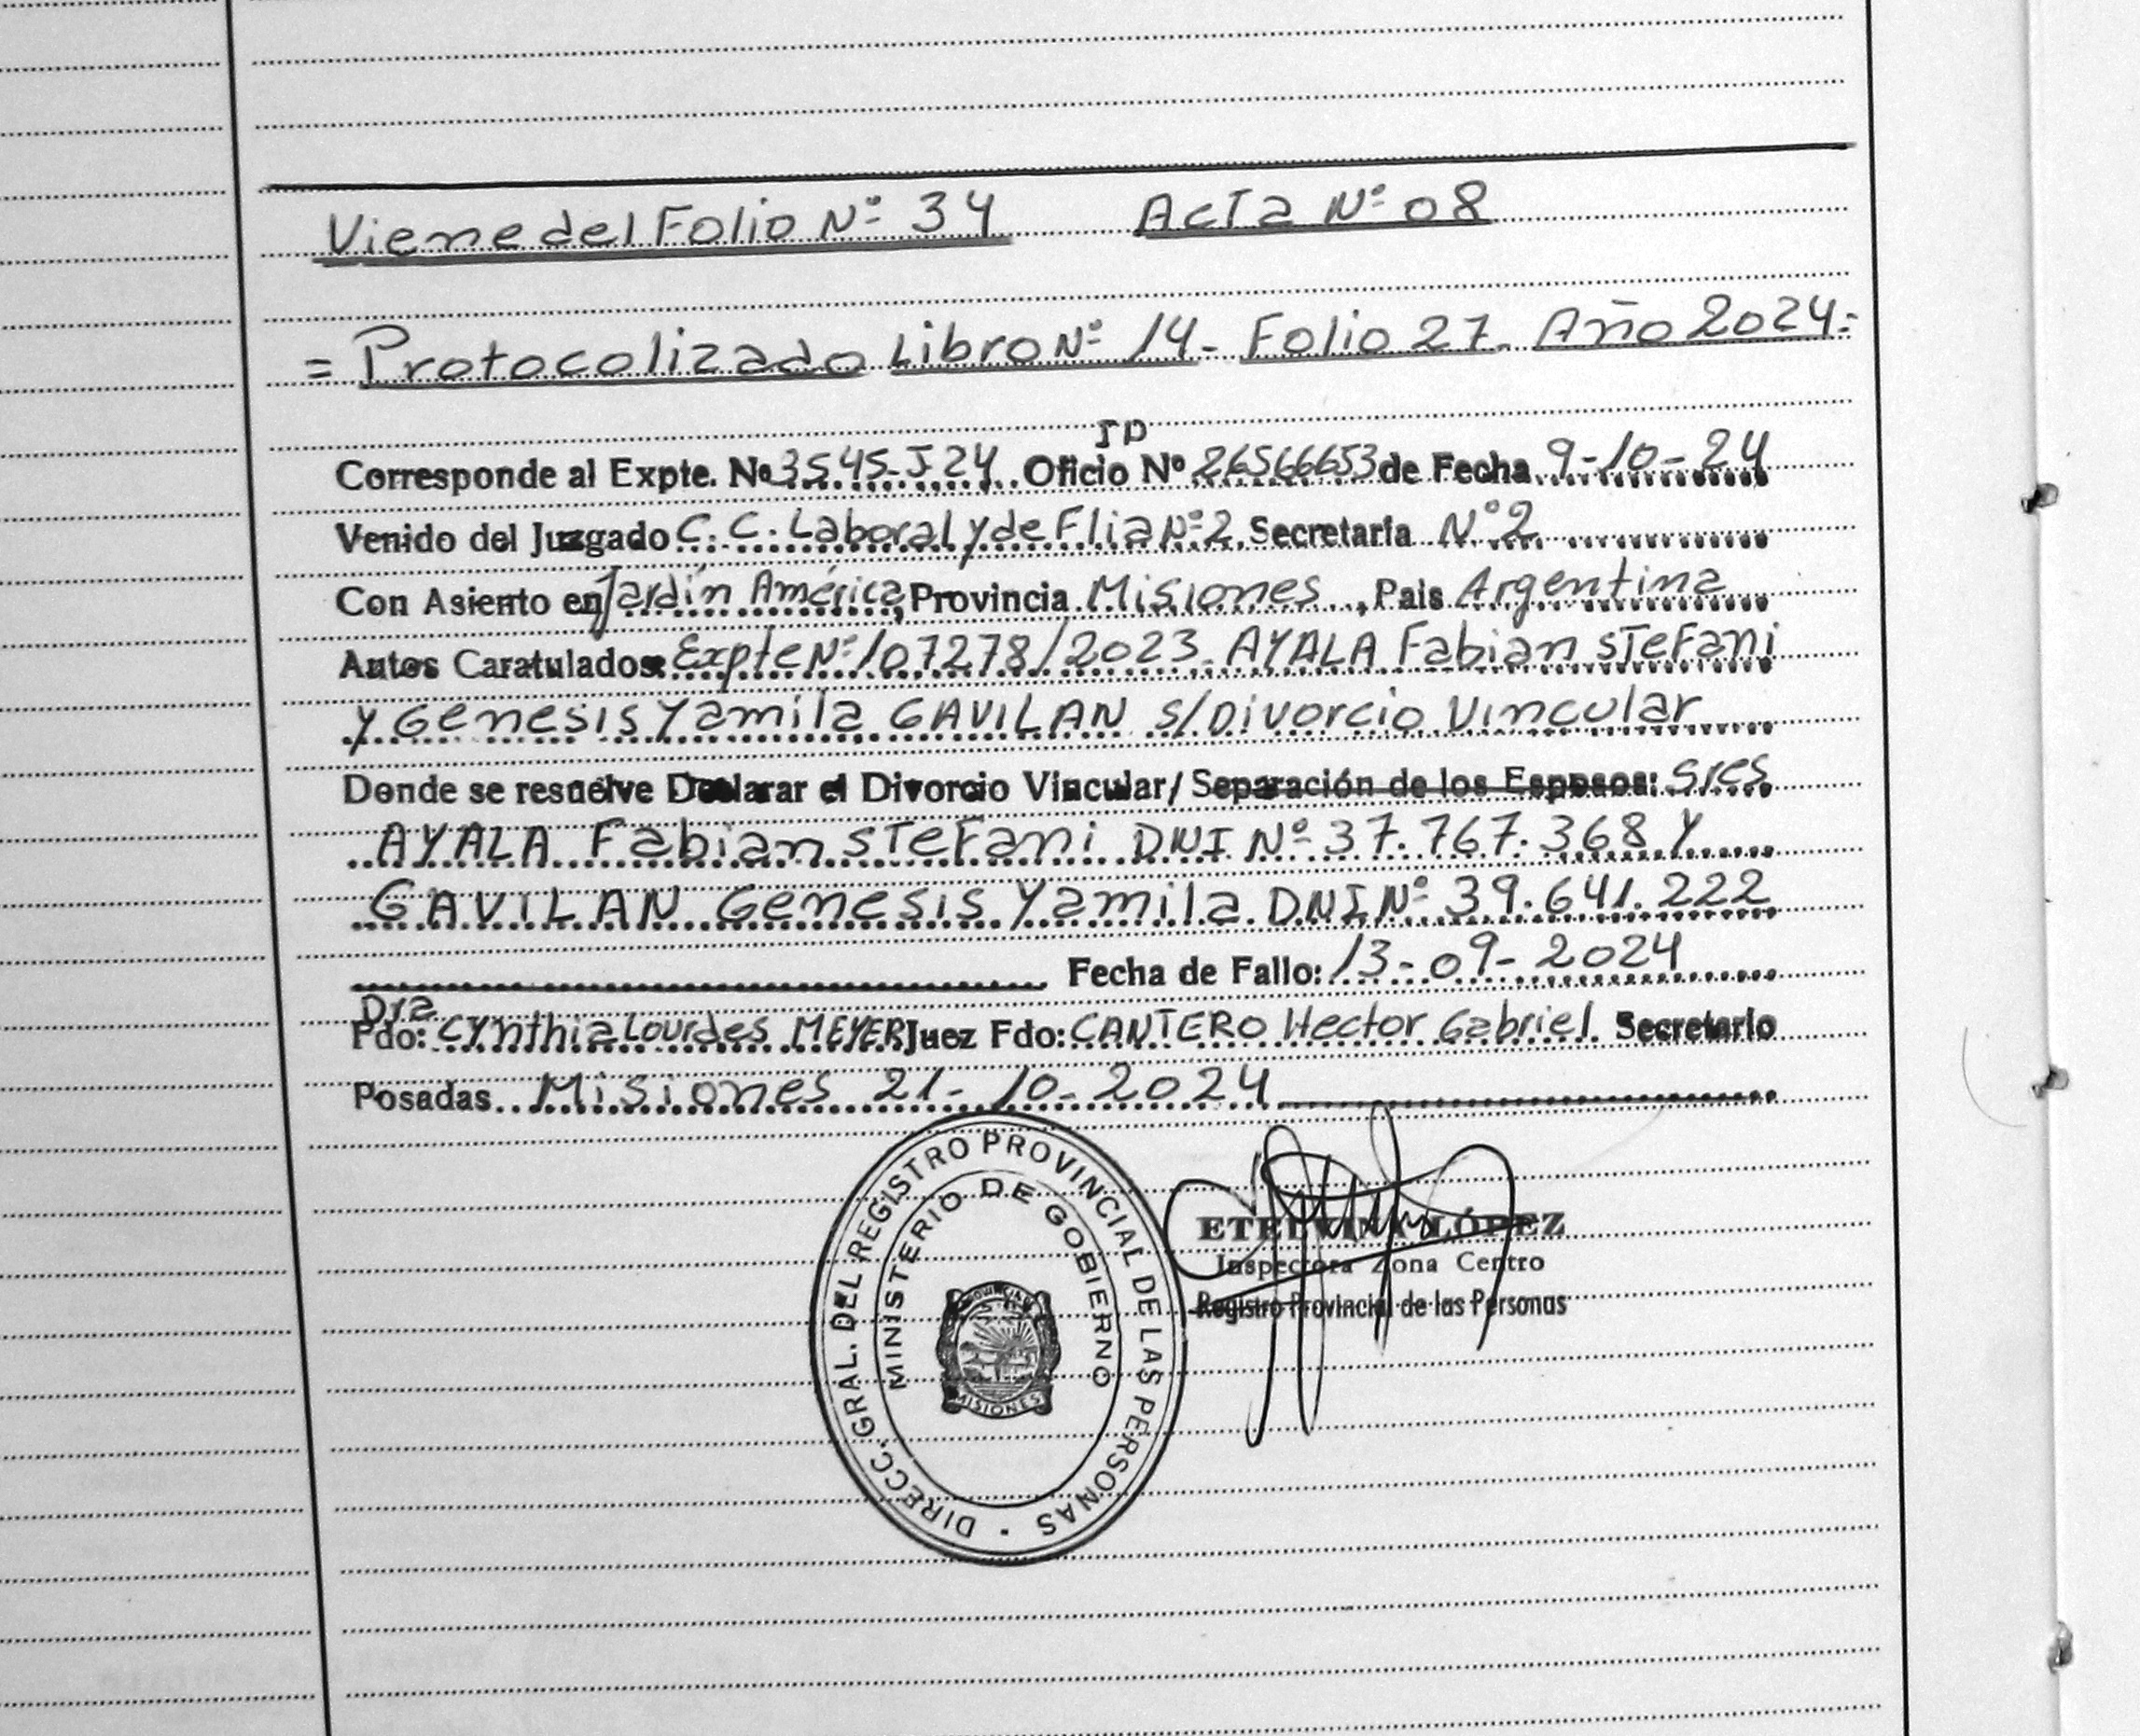 Viene del Folio Nº 34 Acta Nº 08
= Protocolizado Libro Nº 14- Folio 27- Año 2024-
ID
Corresponde al Expte. Nº 3545-J-24 Oficio Nº 26566653 de Fecha 9-10-24
Venido del Juzgado C. C. Laboral y de Flia Nº 2 Secretaría Nº 2
Con Asiento en Jardín América, Provincia Misiones, Pais Argentina
Autos Caratulados: Expte Nº 107278/2023 AYALA Fabian Stefani
y Genesis Yamila GAVILAN s/Divorcio Vincular
Donde se resuelve Declarar el Divorcio Vincular/ Separación de los Esposos: Sres
AYALA Fabian Stefani DNI Nº 37.767.368 Y
GAVILAN Genesis Yamila DNI Nº 39.641.222
Fecha de Fallo: 13-09-2024
Dra
Fdo: Cynthia Lourdes MEYER Juez Fdo: CANTERO Hector Gabriel Secretario
Posadas Misiones 21-10-2024
DIRECC. GRAL. DEL REGISTRO PROVINCIAL DE LAS PERSONAS
MINISTERIO DE GOBIERNO
MISIONES
ETELVINA LÓPEZ
Inspectora Zona Centro
Registro Provincial de las Personas